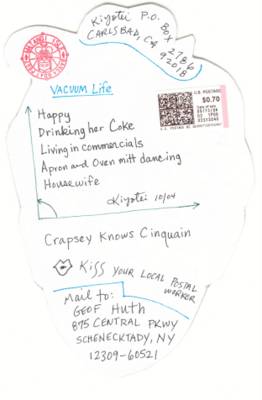 Kiyotei P.O.
BOX
2786
CARLSBAD, CA
92018
U.S. POSTAGE
$0.70
VACUUM Life
Happy
Drinking her Coke
Living in commercials
Apron and Oven mitt dancing
Housewife
Kiyotei 10/04
Crapsey Knows Cinquain
KISS YOUR LOCAL POSTAL
WORKER
Mail to:
GEOF HUTH
875 CENTRAL PKWY
SCHENECKTADY, NY
12309-60521